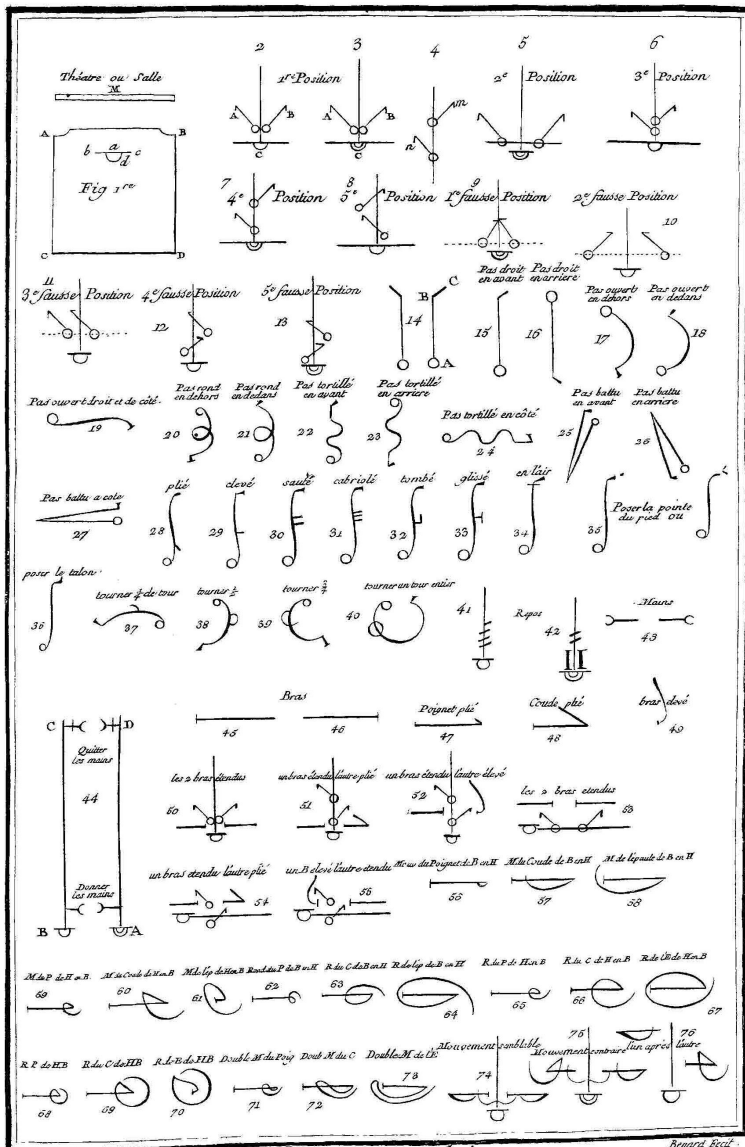 2 3 4 5 6
Théatre ou Salle
M
1re Position
2e Position
3e Position
A B A B m
n
C C
A B
b a c
d
Fig 1re
C D
7 8 9 10
4e Position
5e Position
1e fausse Position
2e fausse Position
11
3e fausse Position
4e fausse Position
5e fausse Position
12 13 14
B C
A
Pas droit en avant
15
Pas droit en arriere
16
Pas ouvert en dehors
17
Pas ouvert en dedans
18
Pas ouvert droit et de côté
19
Pas rond en dehors
20
Pas rond en dedans
21
Pas tortillé en avant
22
Pas tortillé en arriere
23
Pas tortillé en côté
24
Pas battu en avant
25
Pas battu en arriere
26
Pas battu a coté
27
plié
28
elevé
29
sauté
30
cabriolé
31
tombé
32
glissé
33
en l'air
34
35
Poser la pointe
du pied ou
poser le talon
36
tourner ¼ de tour
37
tourner ½
38
tourner ¾
39
tourner un tour entier
40
41
Repos
42
Mains
43
Bras
45 46
Poignet plié
47
Coude plié
48
bras elevé
49
C D
Quitter
les mains
44
Donner
les mains
B A
les 2 bras étendus
50
un bras étendu l'autre plié
51
un bras étendu l'autre élevé
52
les 2 bras etendus
53
un bras etendu l'autre plié
54
un B elevé l'autre etendu
55
Mouv du Poignet de B en H
56
M du Coude de B en H
57
M de l'épaule de B en H
58
M du P de H en B
59
M du Coude de H en B
60
M de l'ép de H en B
61
Rond du P de B en H
62
R du C de B en H
63
R de l'ép de B en H
64
R du P de H en B
65
R du C de H en B
66
R de l'E de H en B
67
R P de HB
68
R du C de HB
69
R de E de HB
70
Double M du Poig
71
Doub M du C
72
Double M de l'E
73
Mouvement semblable
74
75
Mouvement contraire
76
l'un après l'autre
Benard Fecit